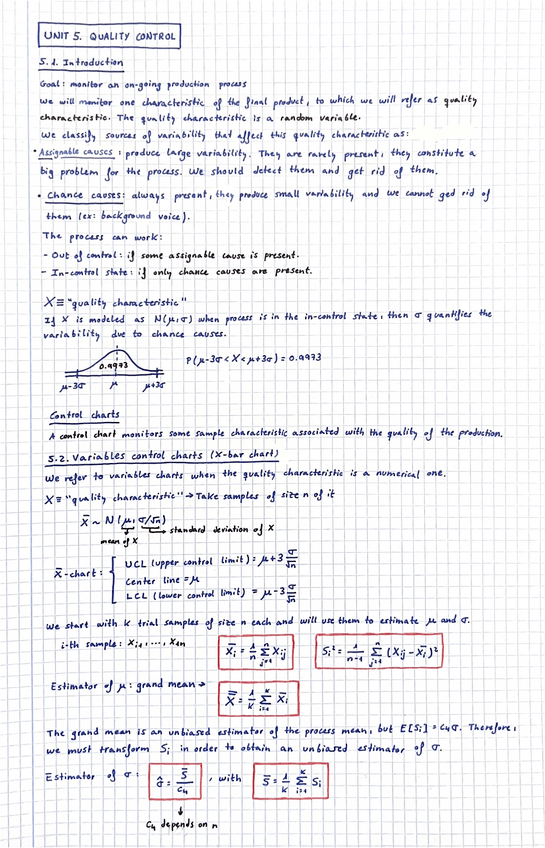 UNIT 5. QUALITY CONTROL
5.1. Introduction
Goal: monitor an on-going production process
We will monitor one characteristic of the final product, to which we will refer as quality
characteristic. The quality characteristic is a random variable.
We classify sources of variability that affect this quality characteristic as:
• Assignable causes: produce large variability. They are rarely present, they constitute a
big problem for the process. We should detect them and get rid of them.
• Chance causes: always present, they produce small variability and we cannot ged rid of
them (ex: background voice).
The process can work:
- Out of control: if some assignable cause is present.
- In-control state: if only chance causes are present.
X ≡ "quality characteristic"
If X is modeled as N(μ,σ) when process is in the in-control state, then σ quantifies the
variability due to chance causes.
0.9973
P(μ-3σ < X < μ+3σ) = 0.9973
μ-3σ μ μ+3σ
Control charts
A control chart monitors some sample characteristic associated with the quality of the production.
5.2. Variables control charts (X-bar chart)
We refer to variables charts when the quality characteristic is a numerical one.
X ≡ "quality characteristic" → Take samples of size n of it
X̄ ~ N(μ, σ/√n)
→ standard deviation of X
mean of X
X̄-chart: { UCL (upper control limit) = μ+3 σ/√n
Center line = μ
LCL (lower control limit) = μ-3 σ/√n
We start with K trial samples of size n each and will use them to estimate μ and σ.
i-th sample: Xi1, ..., Xin X̄i = 1/n Σ(j=1..n) Xij Si² = 1/(n-1) Σ(j=1..n) (Xij - X̄i)²
Estimator of μ: grand mean → X̿ = 1/K Σ(i=1..K) X̄i
The grand mean is an unbiased estimator of the process mean, but E[Si] = C4σ. Therefore,
we must transform Si in order to obtain an unbiased estimator of σ.
Estimator of σ: σ̂ = S̄/C4, with S̄ = 1/K Σ(i=1..K) Si
C4 depends on n